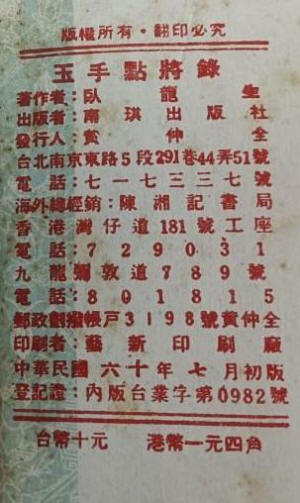 版權所有·翻印必究
玉手點將錄
著作者：臥龍生
出版者：南琪出版社
發行人：黃仲全
台北南京東路5段291巷44弄51號
電話：七一七三三七號
海外總經銷：陳湘記書局
香港灣仔道181號工座
電話：729031
九龍彌敦道789號
電話：801815
郵政劃撥帳戶3198號黃仲全
印刷者：藝新印刷廠
中華民國六十年七月初版
登記證：內版台業字第0982號
台幣十元 港幣一元四角